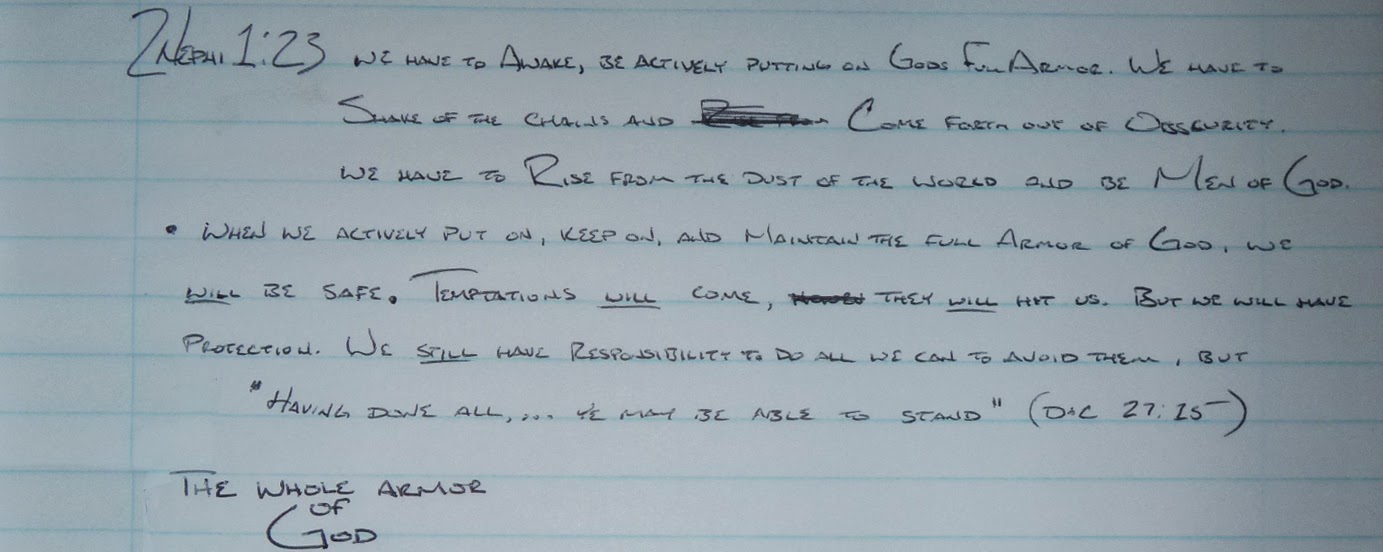 2 NEPHI 1:23 WE HAVE TO AWAKE, BE ACTIVELY PUTTING ON GODS FULL ARMOR. WE HAVE TO
SHAKE OF THE CHAINS AND COME FORTH OUT OF OBSSCURITY.
WE HAVE TO RISE FROM THE DUST OF THE WORLD AND BE MEN OF GOD.
• WHEN WE ACTIVELY PUT ON, KEEP ON, AND MAINTAIN THE FULL ARMOR OF GOD, WE
WILL BE SAFE. TEMPTATIONS WILL COME, THEY WILL HIT US. BUT WE WILL HAVE
PROTECTION. WE STILL HAVE RESPONSIBILITY TO DO ALL WE CAN TO AVOID THEM, BUT
"HAVING DONE ALL,... YE MAY BE ABLE TO STAND" (D&C 27:15)
THE WHOLE ARMOR
OF
GOD